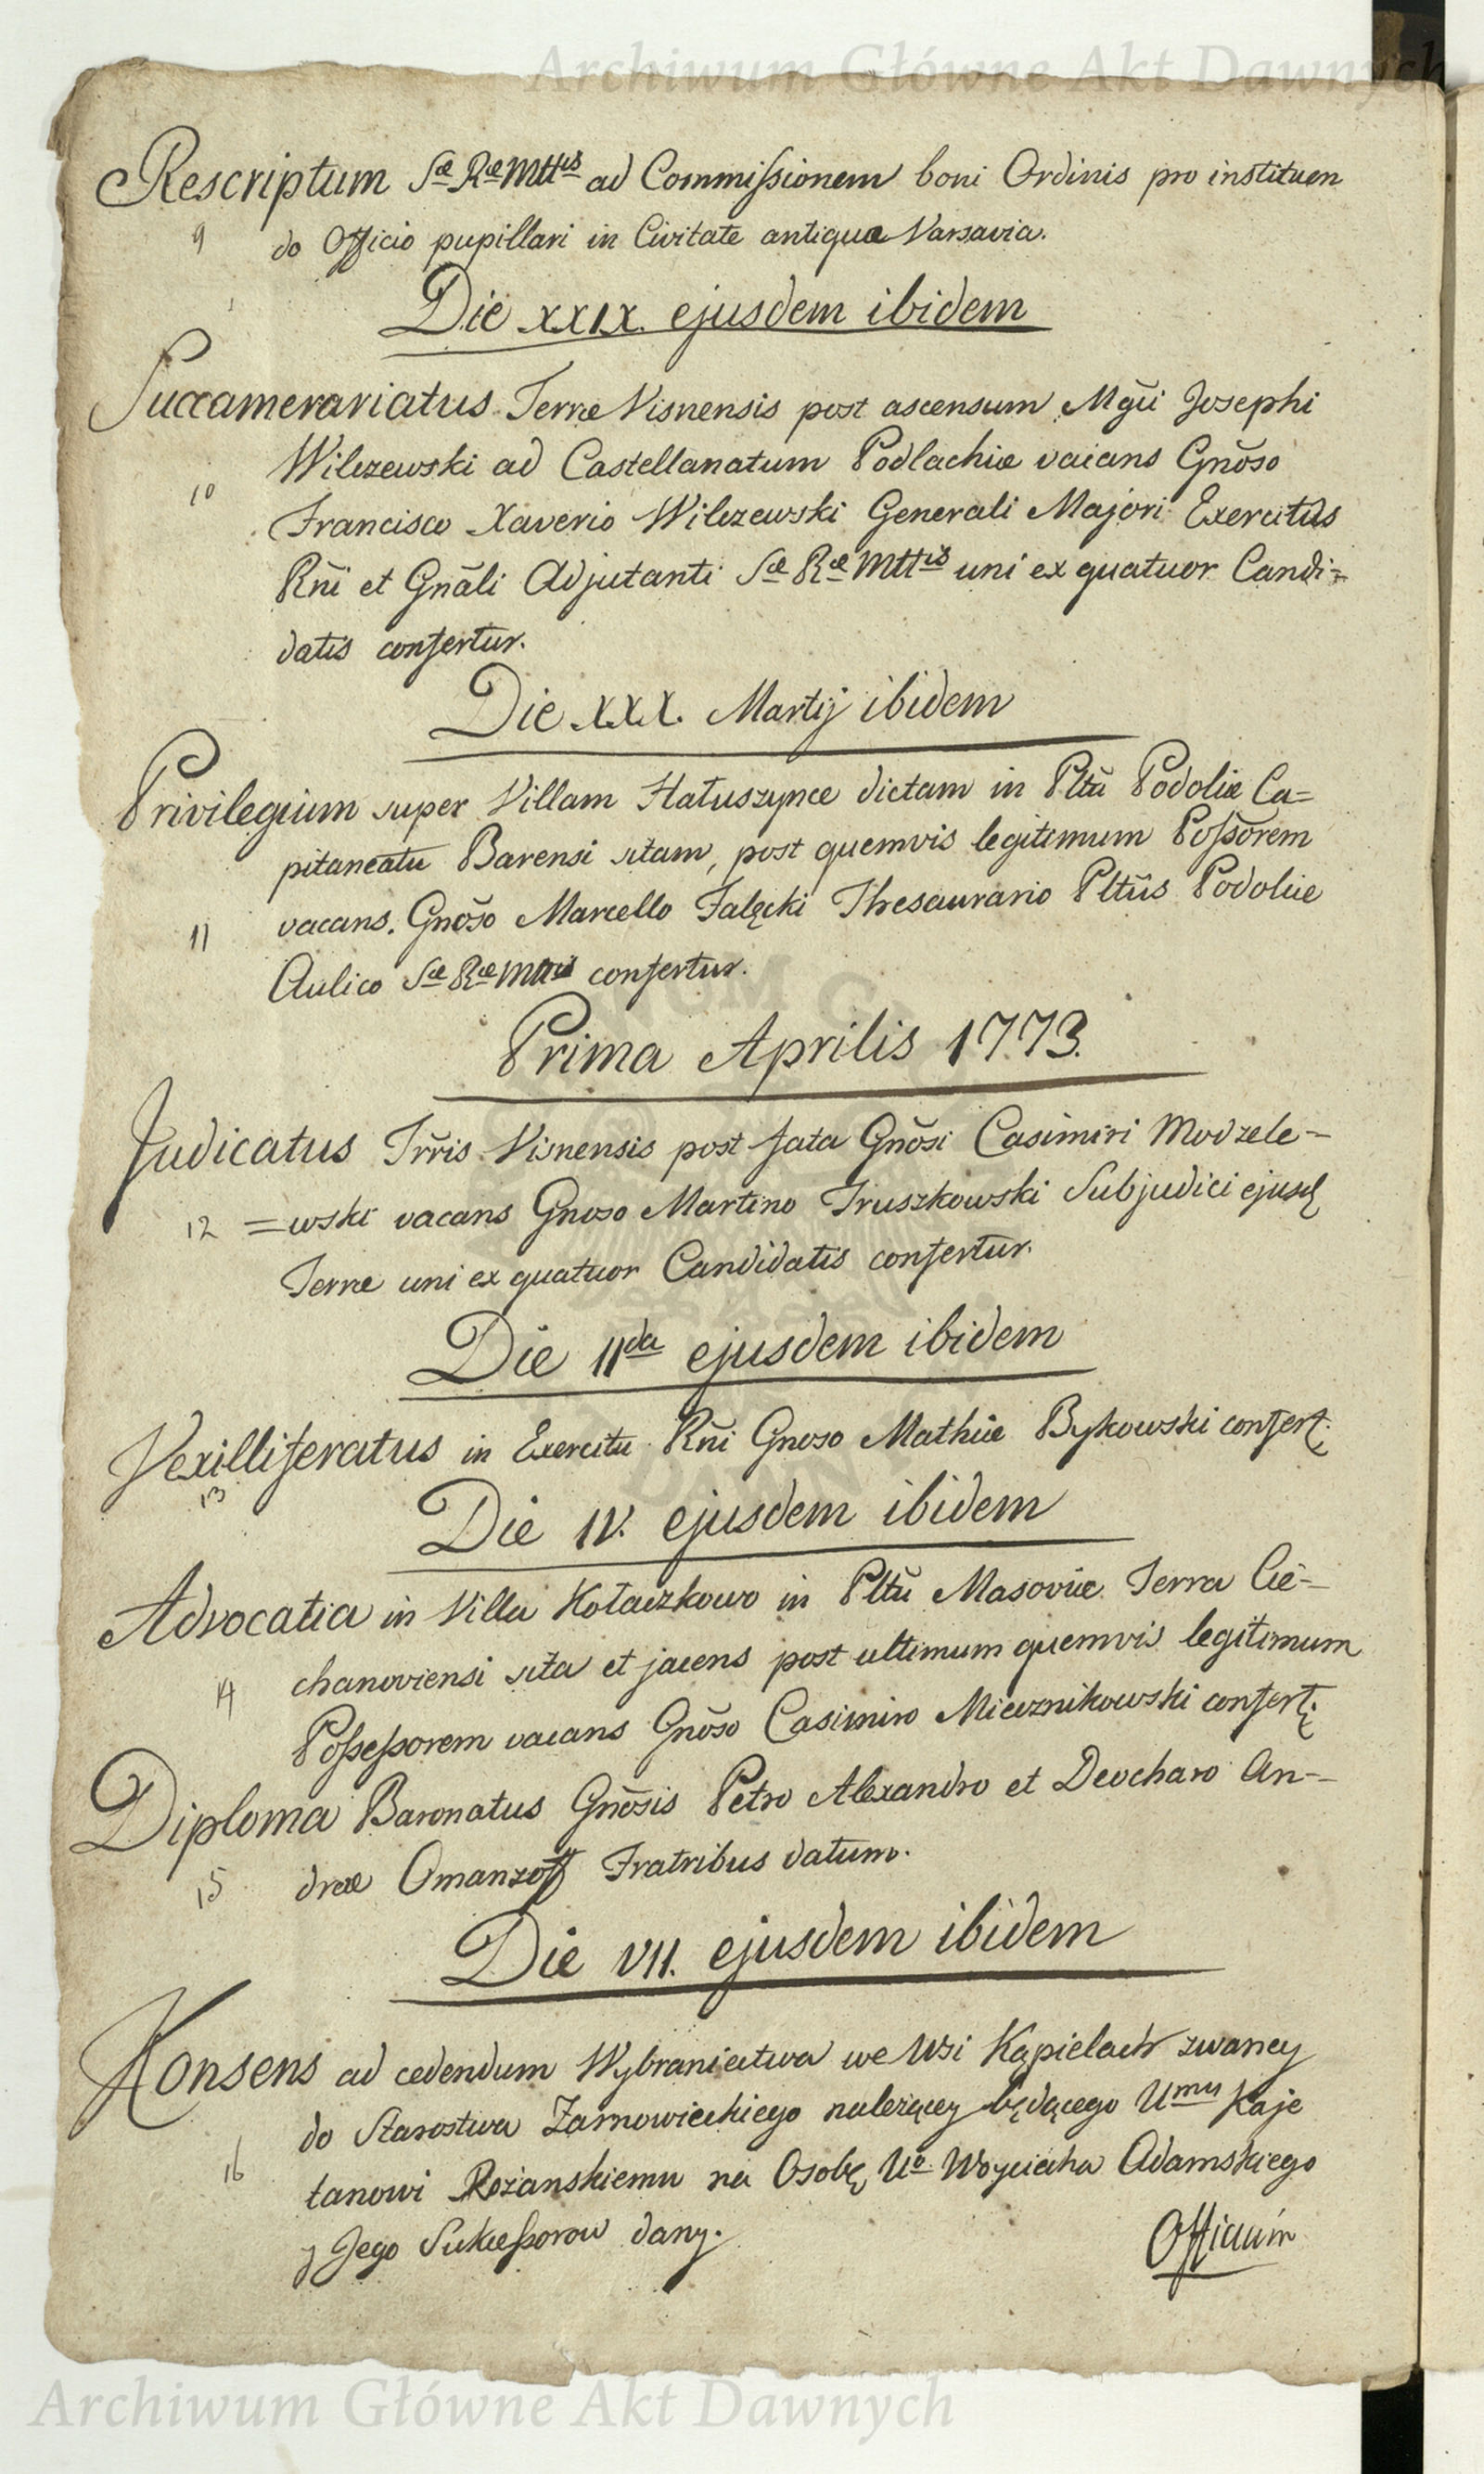 Archiwum Główne Akt Dawnych
Rescriptum Sæ Ræ Mttis ad Commissionem boni Ordinis pro instituen
9 do Officio pupillari in Civitate antiqua Varsavia.
Die XXIX. ejusdem ibidem
Succamerariatus Terræ Visnensis post ascensum Mgũi Josephi
Wilczewski ad Castellanatum Podlachiæ vacans Gnõso
10 Francisco Xaverio Wilczewski Generali Majori Exercitus
Rñi et Gnãli Adjutanti Sæ Ræ Mttis uni ex quatuor Candi=
datis confertur.
Die XXX. Martij ibidem
Privilegium super Villam Hałuszynce dictam in Pltũ Podoliæ Ca=
pitaneatu Barensi sitam, post quemvis legitimum Possõrem
11 vacans. Gnõso Marcello Falęcki Thesaurario Pltũs Podoliæ
Aulico Sæ Ræ Mttis confertur.
Prima Aprilis 1773.
Judicatus Trr̃is Visnensis post fata Gnõsi Casimiri Modzele=
12 =wski vacans Gnoso Martino Truszkowski Subjudici ejusd
Terræ uni ex quatuor Candidatis confertur.
Die IIda ejusdem ibidem
Vexilliferatus in Exercitu Rñi Gnoso Mathiæ Bykowski confert.
13
Die IV. ejusdem ibidem
Advocatia in Villa Kołaczkowo in Pltũ Masoviæ Terra Cie=
14 chanoviensi sita et jacens post ultimum quemvis legitimum
Possessorem vacans Gnõso Casimiro Miecznikowski confert.
Diploma Baronatus Gnõsis Petro Alexandro et Deocharo An=
15 dreæ Omanzoff Fratribus datum.
Die VII. ejusdem ibidem
Konsens ad cedendum Wybraniectwa we Wsi Kąpielach zwaney
do Starostwa Zarnowieckiego nalezącey będącego Umu Kaje
16 tanowi Rozanskiemu na Osobę Uo Woyciecha Adamskiego
y Jego Sukcessorow dany.
Officium
Archiwum Główne Akt Dawnych